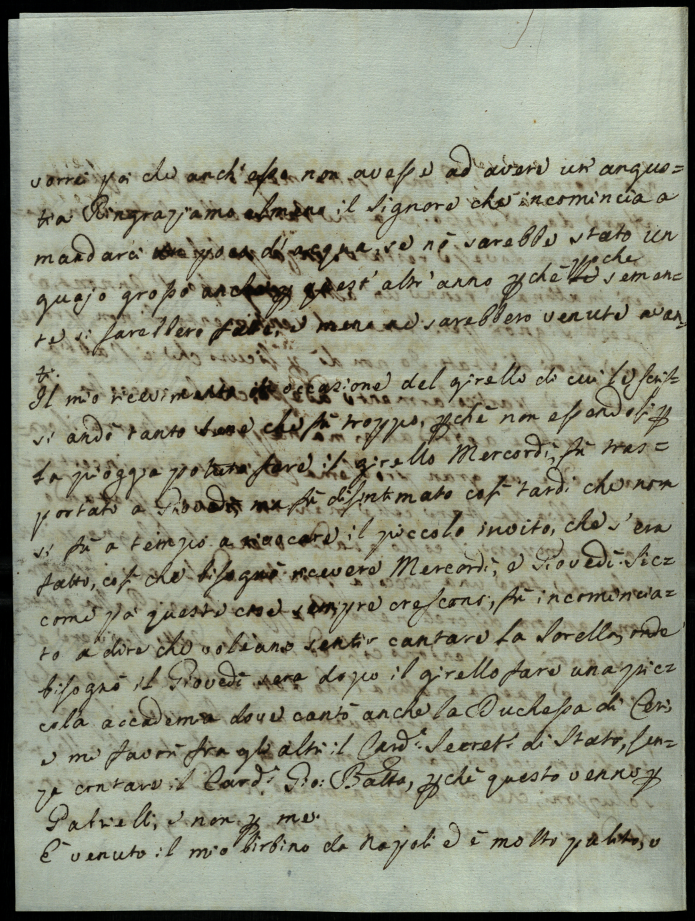 vorrei poi che anch' essa non avesse ad avere un' angus=
tia Ringraziamo almeno il Signore che incomincia a
mandarci un poca di acqua, se nò sarebbe stato un
guajo grosso anche p quest' altr' anno pchè poche semen=
te si sarebbero fatte, e meno ne sarebbero venute avan=
ti.
Il mio ricevimento in occasione del girello di cui le scris=
si andò tanto bene che fù troppo, pchè non essendosi p
la pioggia potuto fare il girello Mercordì, fù tras=
portato a Giovedì, ma fù disintimato così tardi che non
si fù a tempo a il piccolo invito, che s' era
fatto, così che bisognò ricevere Mercordì, e Giovedì. Sic=
come poi queste cose sempre crescono, fù incomincia=
to a dire che voleano sentir cantare la Sorella, onde
bisognò il Giovedì sera dopo il girello fare una pic=
cola accademia dove cantò anche la Duchessa di Ceri,
e me favorì fra gli altri il Card.e Secret.o di Stato, sen=
za contare il Card.e Gio: Batta, pchè questo venne p
Gabrielli, e non p me.
È venuto il mio birbino da Napoli ed è molto pulito, e